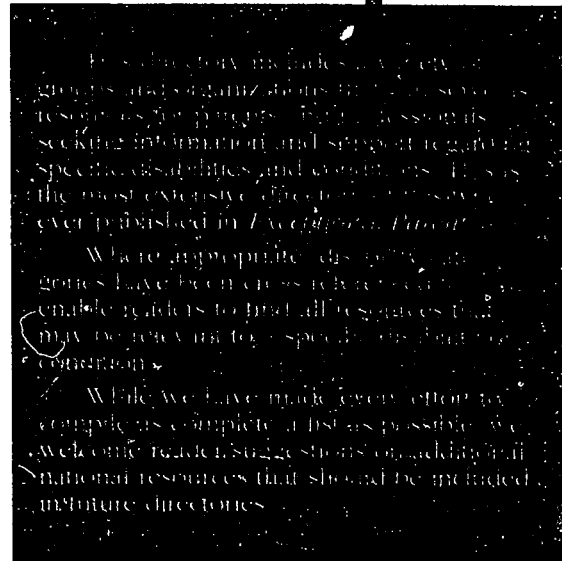 This directory includes a variety of
groups and organizations that serve as
resources for parents and professionals
seeking information and support regarding
specific disabilities and conditions. This is
the most extensive directory
ever published in Exceptional Parent.
Where appropriate, disability cat-
gories have been cross-referenced
enable readers to find all resources that
may be relevant to a specific disability or
condition.
While we have made every effort to
compile as complete a list as possible, we
welcome reader suggestions on additional
national resources that should be included
in future directories.